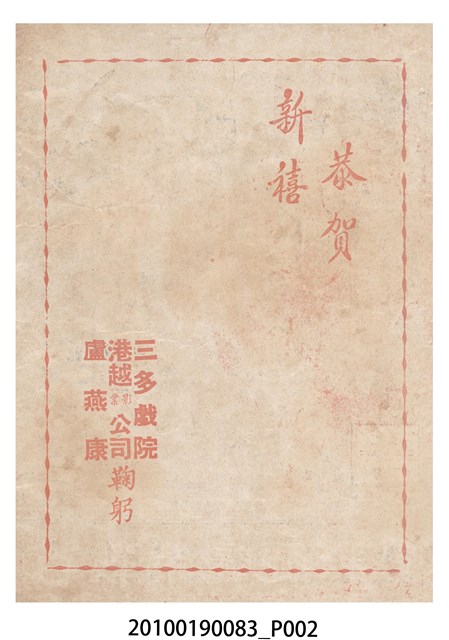 恭賀
新禧
三多戲院
港越影業公司鞠躬
盧燕康
20100190083_P002